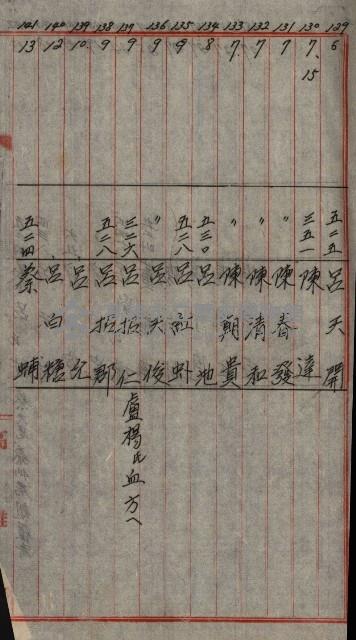 129 6 五二五 呂天開
130 7、15 三五一 陳達
131 7 〃 陳春發
132 7 〃 陳清和
133 7 〃 陳期貴
134 8 五三〇 呂池
135 9 五二八 呂紅虾
136 9 〃 呂天俊
137 9 三二六 呂招仁 盧楊氏血方へ
138 9 五二八 呂招郡
139 10 呂允
140 12 呂白糖
141 13 五二四 蔡蜅